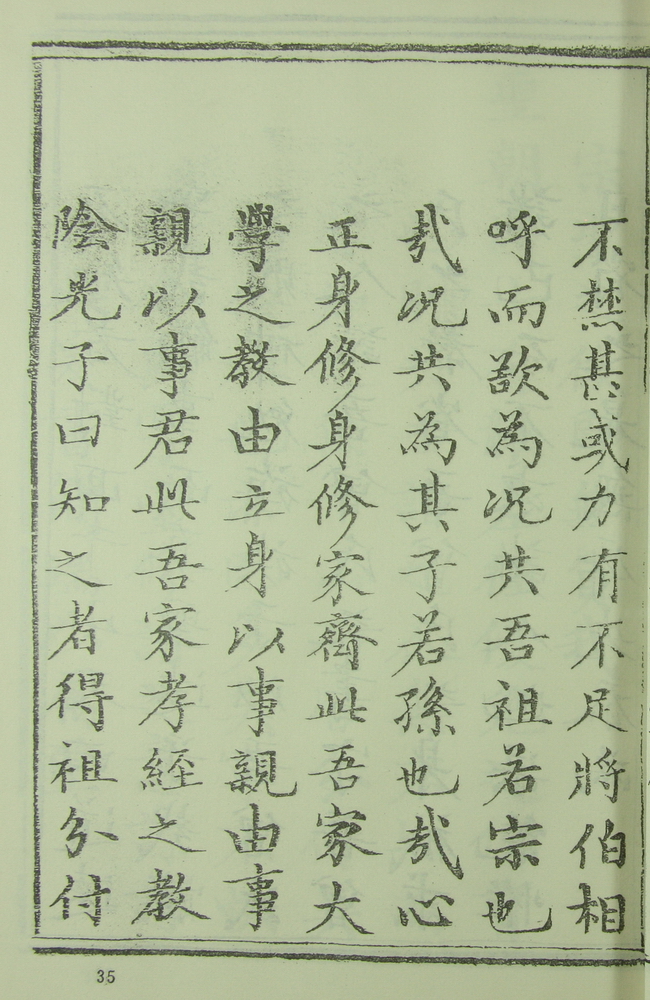 不禁甚或力有不足將伯相
呼而欲為况共吾祖若宗也
哉况共為其子若孫也哉心
正身修身修家齊此吾家大
學之教由立身以事親由事
親以事君此吾家孝經之教
陰光子曰知之者得祖分付
35